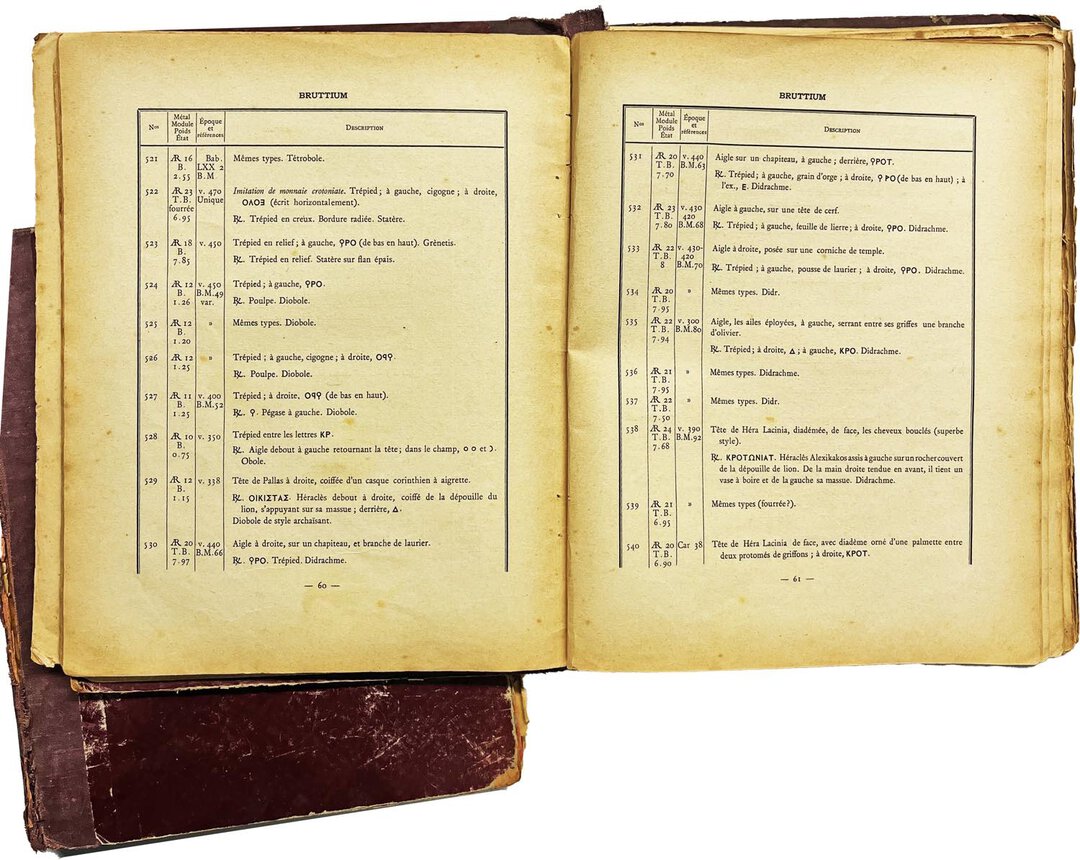 BRUTTIUM
Nos
Métal
Module
Poids
État
Époque
et
références
DESCRIPTION
521
AR 16
B.
2.55
Bab.
LXX 2
B. M
Mêmes types. Tétrobole.
522
AR 23
T.B.
fourrée
6.95
v. 470
Unique
Imitation de monnaie crotoniate. Trépied; à gauche, cigogne; à droite,
(écrit horizontalement).
℞. Trépied en creux. Bordure radiée. Statère.
523
AR 18
B.
7.85
v. 450
Trépied en relief; à gauche, ϘΡΟ (de bas en haut). Grènetis.
℞. Trépied en relief. Statère sur flan épais.
524
AR 12
B.
1.26
v. 450
B.M.49
var.
Trépied; à gauche, ϘΡΟ.
℞. Poulpe. Diobole.
525
AR 12
B.
1.20
»
Mêmes types. Diobole.
526
AR 12
1.25
»
Trépied; à gauche, cigogne; à droite, ΟꟼϘ.
℞. Poulpe. Diobole.
527
AR 11
B.
1.25
v. 400
B.M.52
Trépied; à droite, ΟꟼϘ (de bas en haut).
℞. Ϙ. Pégase à gauche. Diobole.
528
AR 10
B.
0.75
v. 350
Trépied entre les lettres ΚΡ.
℞. Aigle debout à gauche retournant la tête; dans le champ, O O et Ͻ.
Obole.
529
AR 12
B.
1.15
v. 338
Tête de Pallas à droite, coiffée d'un casque corinthien à aigrette.
℞. ΟΙΚΙΣΤΑΣ. Héraclès debout à droite, coiffé de la dépouille du
lion, s'appuyant sur sa massue; derrière, Δ.
Diobole de style archaïsant.
530
AR 20
T.B.
7.97
v. 440
B.M.66
Aigle à droite, sur un chapiteau, et branche de laurier.
℞. ϘΡΟ. Trépied. Didrachme.
— 60 —
BRUTTIUM
Nos
Métal
Module
Poids
État
Époque
et
références
DESCRIPTION
531
AR 20
T.B.
7.70
v. 440
B.M.63
Aigle sur un chapiteau, à gauche; derrière, ϘΡΟΤ.
℞. Trépied; à gauche, grain d'orge; à droite, ϘΡΟ (de bas en haut); à
l'ex., E. Didrachme.
532
AR 23
T.B.
7.80
v. 430
420
B.M.68
Aigle à gauche, sur une tête de cerf.
℞. Trépied; à gauche, feuille de lierre; à droite, ϘΡΟ. Didrachme.
533
AR 22
T.B.
8
v. 430-
420
B.M.70
Aigle à droite, posée sur une corniche de temple.
℞. Trépied; à gauche, pousse de laurier; à droite, ϘΡΟ. Didrachme.
534
AR 20
T.B.
7.95
»
Mêmes types. Didr.
535
AR 22
T.B.
7.94
v. 300
B.M.80
Aigle, les ailes éployées, à gauche, serrant entre ses griffes une branche
d'olivier.
℞. Trépied; à droite, Δ; à gauche, ΚΡΟ. Didrachme.
536
AR 21
T.B.
7.95
»
Mêmes types. Didrachme.
537
AR 22
T.B.
7.50
»
Mêmes types. Didr.
538
AR 24
T.B.
7.68
v. 390
B.M.92
Tête de Héra Lacinia, diadémée, de face, les cheveux bouclés (superbe
style).
℞. ΚΡΟΤΩΝΙΑΤ. Héraclès Alexikakos assis à gauche sur un rocher couvert
de la dépouille de lion. De la main droite tendue en avant, il tient un
vase à boire et de la gauche sa massue. Didrachme.
539
AR 21
T.B.
6.95
»
Mêmes types (fourrée?).
540
AR 20
T.B.
6.90
Car 38
Tête de Héra Lacinia de face, avec diadème orné d'une palmette entre
deux protomés de griffons; à droite, ΚΡΟΤ.
— 61 —